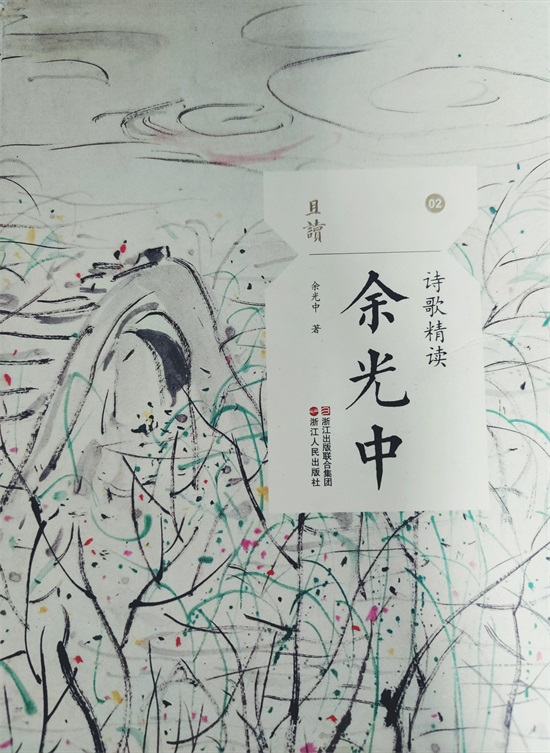 02
且讀
诗歌精读
余光中
余光中 著
浙江出版联合集团
浙江人民出版社